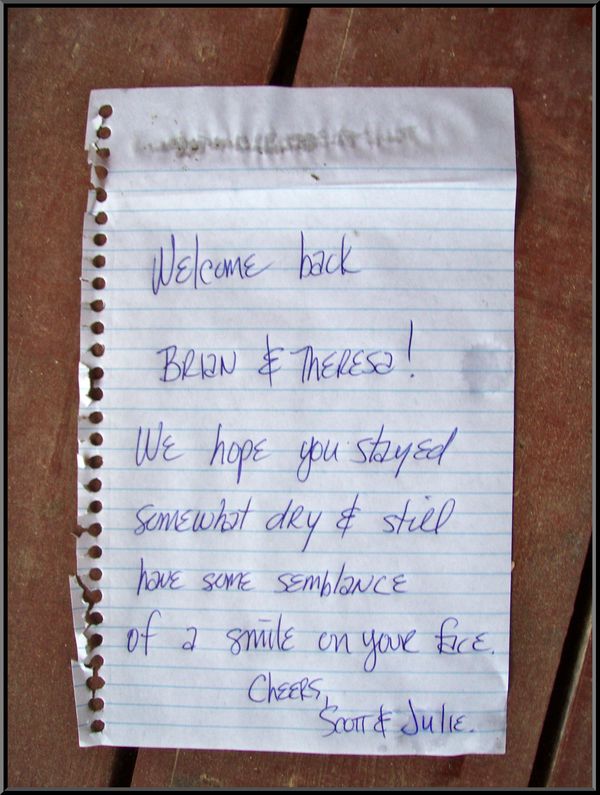 Welcome back
Brian & Theresa!
We hope you stayed
somewhat dry & still
have some semblance
of a smile on your face.
Cheers,
Scott & Julie.